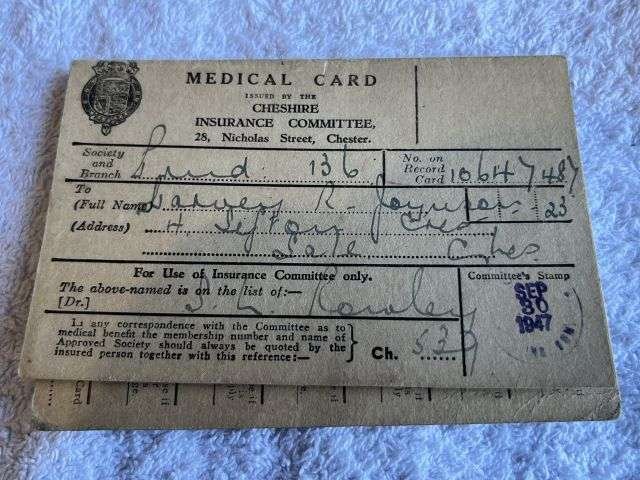 MEDICAL CARD
ISSUED BY THE
CHESHIRE
INSURANCE COMMITTEE,
28, Nicholas Street, Chester.
Society
and
Branch
136
No. on
Record
Card
10647487
To
(Full Name)
R.
23
(Address)
4
Sale Ches.
For Use of Insurance Committee only.
The above-named is on the list of:—
[Dr.]
Rowley
Committee's Stamp
SEP
30
1947
In any correspondence with the Committee as to
medical benefit the membership number and name of
Approved Society should always be quoted by the
insured person together with this reference:—
Ch. 539